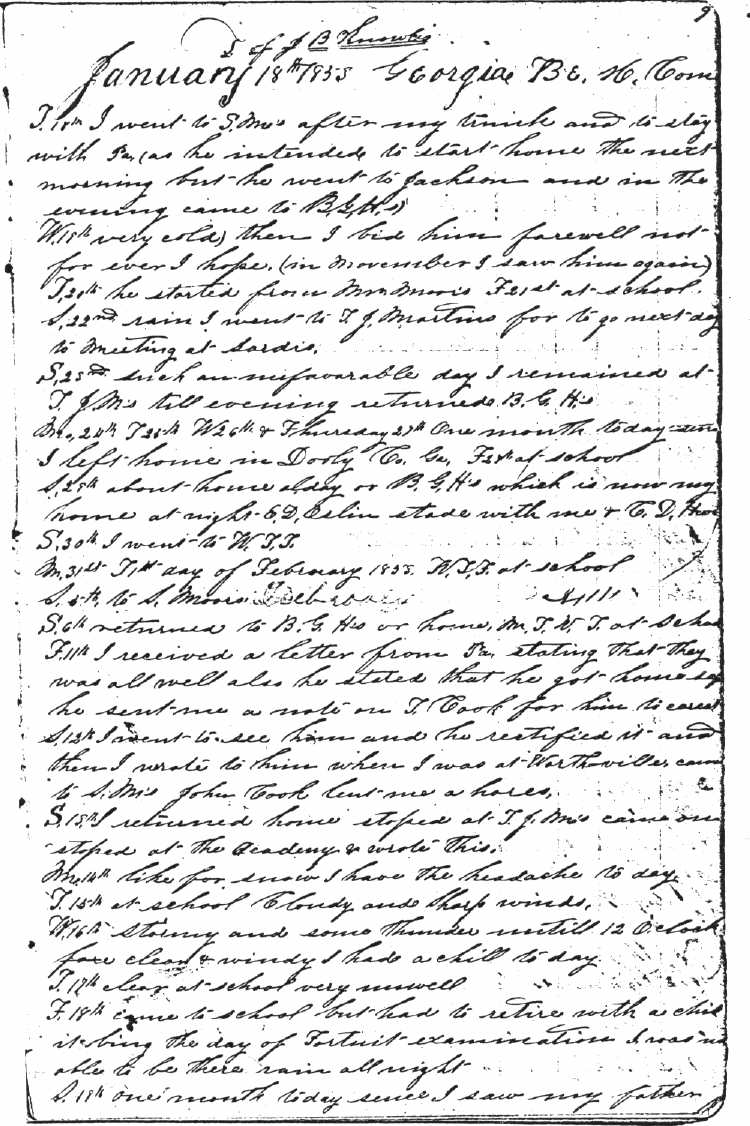 9
of J B Knowles
January 18th 1853 Georgia B. H. Com
T. 18th I went to S. M's after my trunk and to stay
with Pa, (as he intended to start home the next
morning but he went to Jackson and in the
evening came to B. G. H's)
W. 19th very cold) then I bid him farewell not
for ever I hope. (in November I saw him again)
T, 20th he started from Moors F 21st at school.
S, 22nd rain I went to T. J. Martins for to go next day
to Meeting at Sardis.
S, 23rd such an unfavorable day I remained at
T. J. M's till evening returned B. G. H's
Mo, 24th T 25th W 26th & Thursday 27th One month today
I left home in Dooly Co. Ga, F 28th at school
S, 29th about home alday or B. G. H's which is now my
home at night E. D, Eslin stade with me & C. D.
S, 30th I went to W. T. T.
M, 31st T 1st day of February 1853. W. T. F. at school
S. 5th, to S. Moors
S, 6th returned to B. G. H's or home, M. T. W. T. at School
F. 11th I received a letter from Pa. stating that they
was all well also he stated that he got home
he sent me a note on T. Cook for him to
S, 12th I went to see him and he rectified it and
then I wrote to him when I was at Worthville, came
to S. M's John Cook lent me a hores,
S 13th I returned home stoped at T. J. M's came on
stoped at the Academy & wrote this.
M. 14th like for snow I have the headache to day
T. 15th at school Cloudy and sharp winds,
W. 16th stormy and some thunder untill 12 O clock
clear & windy I had a chill to day
T. 17th clear at school very unwell
F. 18th came to school but had to retire with a chill
it bing the day of examination I was
able to be there rain all night
S. 19th one month today sence I saw my father